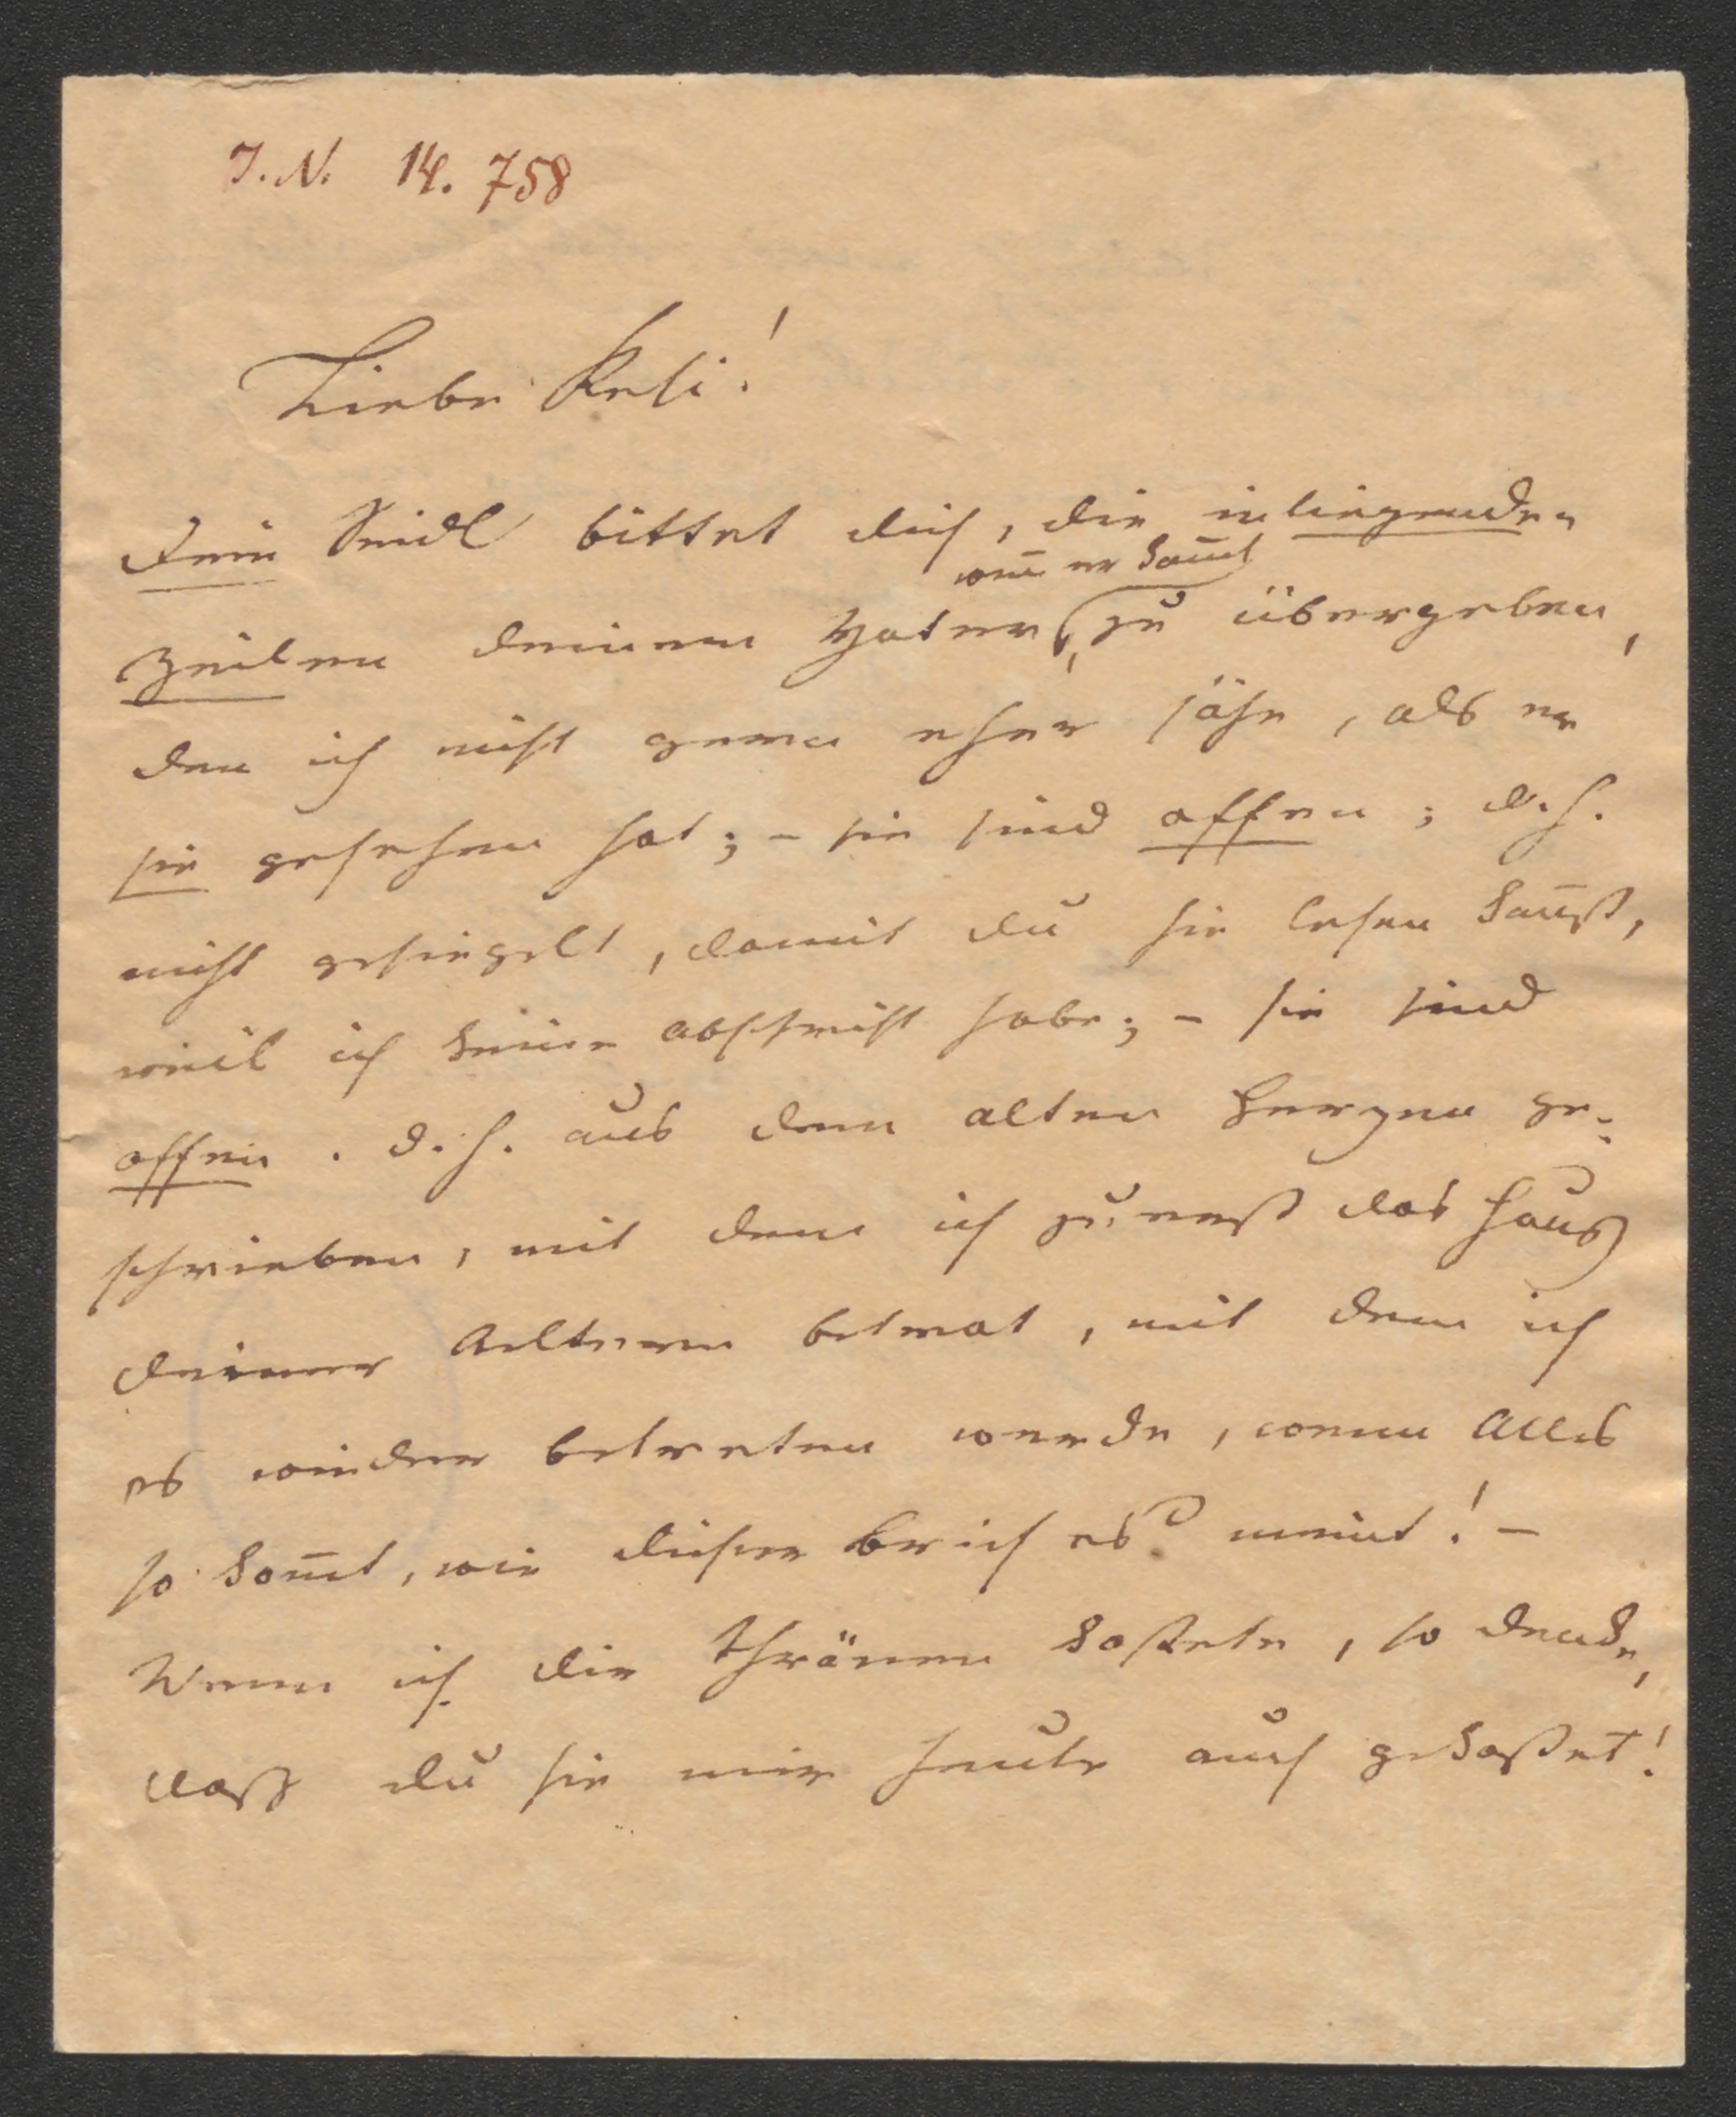 I. N. 14.758
Liebe Resi!
Dein Seidl bittet dich, die inliegenden
weñ er kom̄t
Zeilen deinem Vater, zu übergeben,
den ich nicht gerne eher sähe, als er
sie gesehen hat; – sie sind offen; d. h.
nicht gesiegelt, damit du sie lesen kañst,
weil ich keine Abschrift habe; – sie sind
offen. d. h. aus dem alten Herzen ge-
schrieben, mit dem ich zuerst das Hauß
deiner Aeltern betrat, mit dem ich
es wieder betreten werde, wenn Alles
so kom̄t, wie dieser Brief es meint! –
Wenn ich dir Thränen kostete, so denke,
dass du sie mir heute auch gekostet!